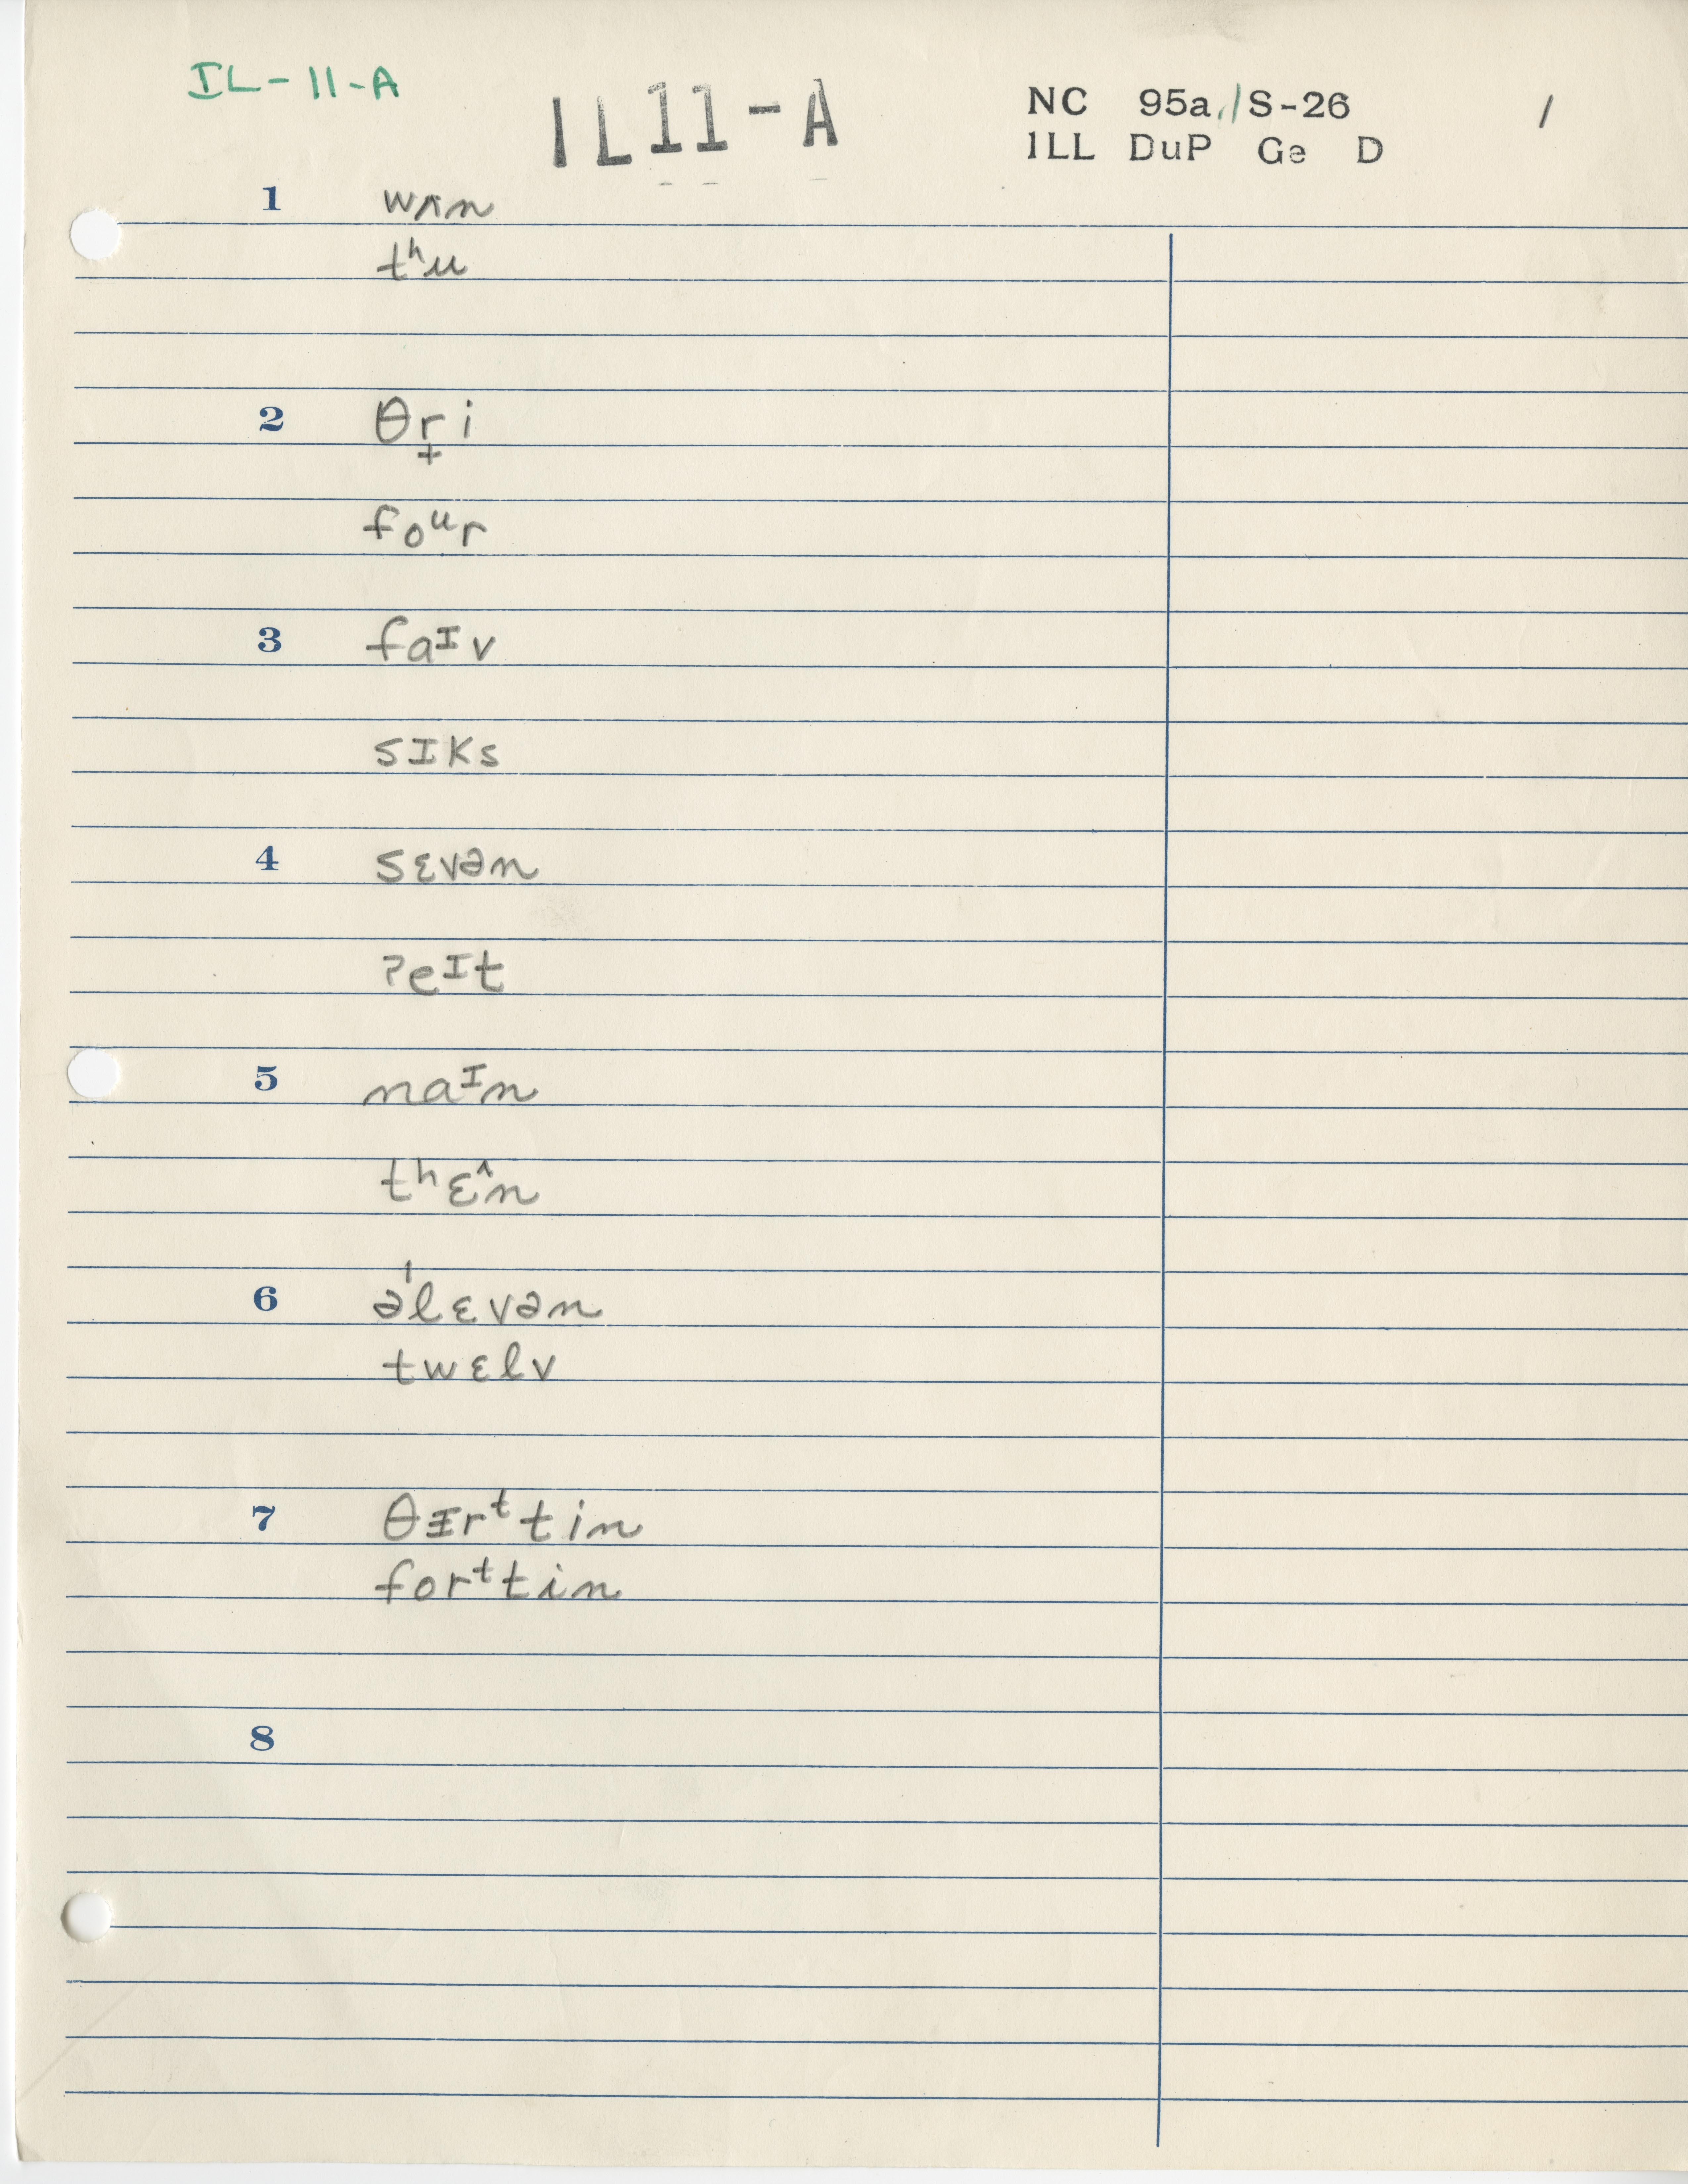 IL-11-A
IL11-A
NC 95a/S-26 /
ILL DuP Ge D
1 wʌn
tʰu
2 θr̟i
foᵘr
3 faᶦv
sɪks
4 sɛvən
ʔeᶦt
5 naᶦn
tʰɛᶺn
6 əˈlɛvən
twɛlv
7 θɪrᵗtin
forᵗtin
8